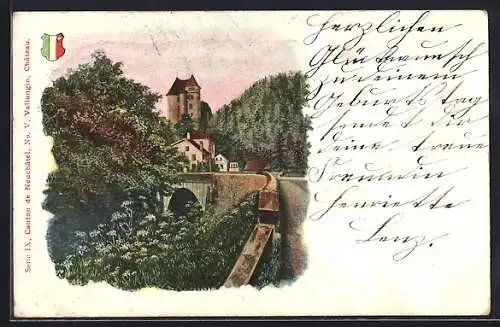 Serie IX, Canton de Neuchâtel, No. V, Vallangin, Château.
Herzlichen
Glückwunsch
zu deinem
Geburtstag
sendet dir
deine treue
Freundin
Henriette
Lenz.